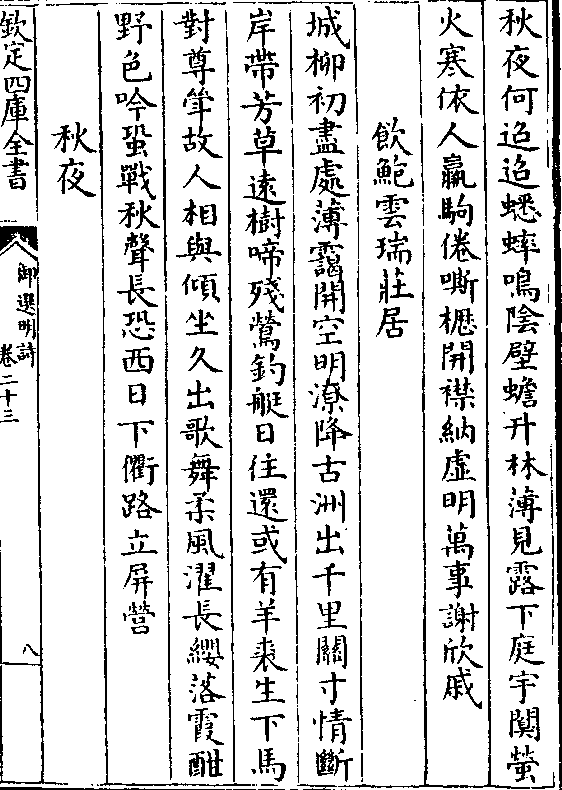 秋夜何迢迢蟋蟀鳴陰壁蟾升林薄見露下庭宇闃螢
火寒依人羸駒倦嘶櫪開襟納虛明萬事謝欣戚
飲鮑雲瑞莊居
城柳初盡處薄靄開空明潦降古洲出千里關寸情斷
岸帶芳草遠樹啼殘鶯釣艇日往還或有羊裘生下馬
對尊罍故人相與傾坐久出歌舞柔風濯長纓落霞酣
野色吟蛩戰秋聲長恐西日下衢路立屏營
秋夜
欽定四庫全書
御選明詩
卷二十三
八